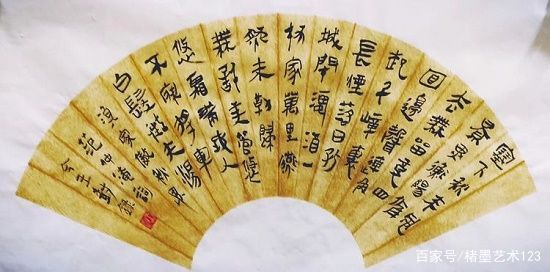 塞下秋来風
景異衡陽雁
去無留意四
面邊聲連角
起千嶂裏
長煙落日孤
城閉濁酒一
杯家萬里燕
然未勒歸
無計羌管悠
悠霜滿地人
不寐將軍
白髮征夫淚
漁家傲
范仲淹詞
百家号/楮墨艺术123